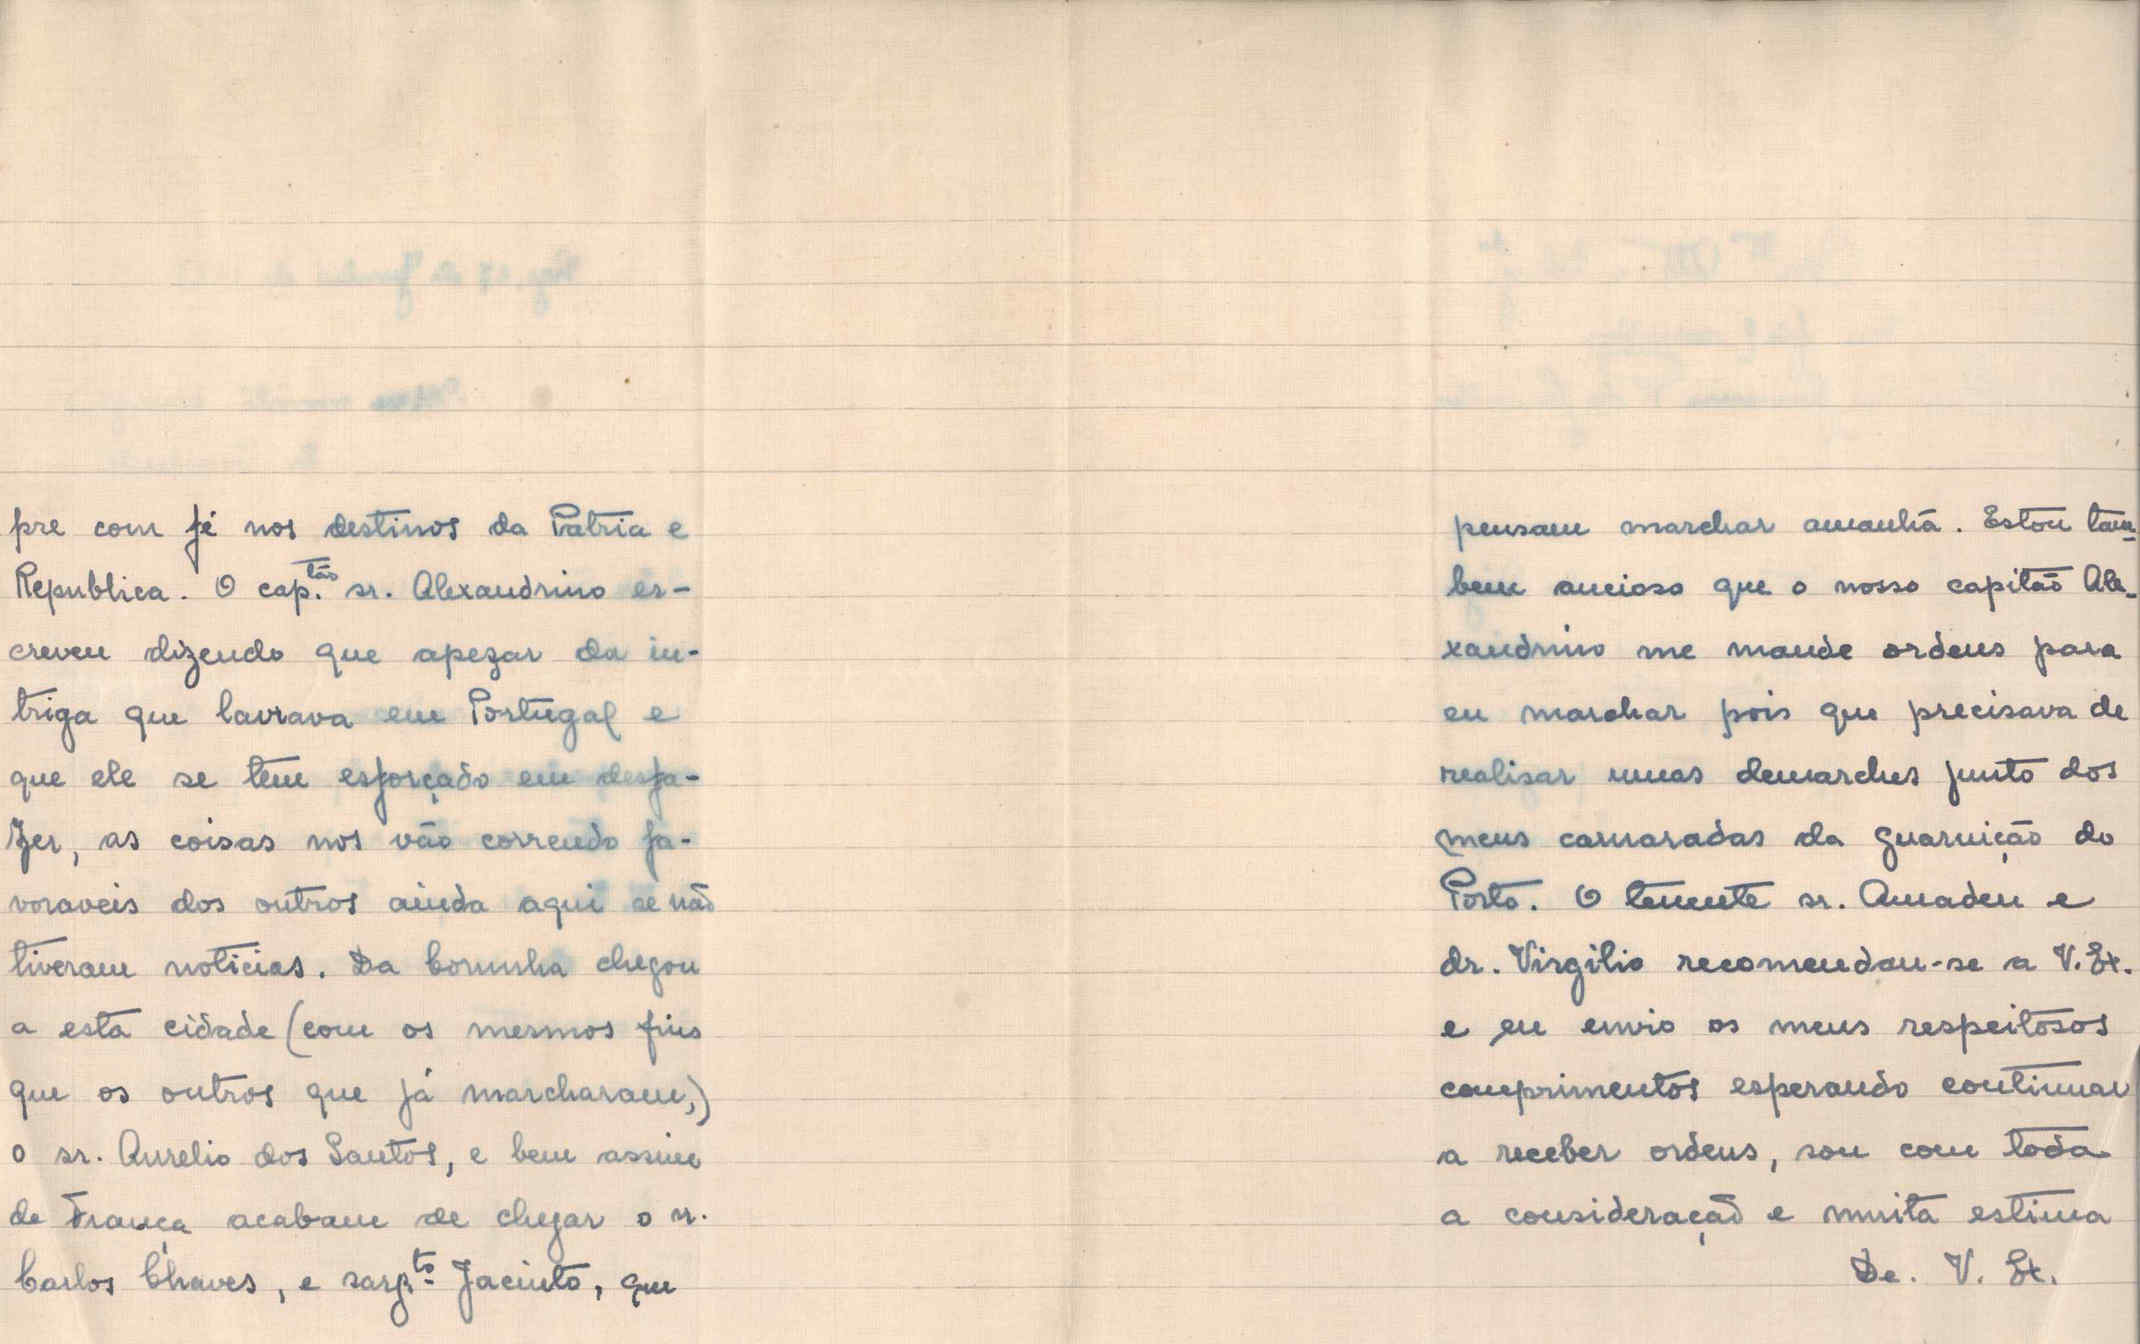 pre com fé nos destinos da Patria e
Republica. O cap.tão sr. Alexandrino es-
creveu dizendo que apezar da in-
triga que lavrava em Portugal e
que ele se tem esforçado em desfa-
zer, as coisas nos vão correndo fa-
voraveis dos outros ainda aqui se não
tiveram noticias. Da Corunha chegou
a esta cidade (com os mesmos fins
que os outros que já marcharam,)
o sr. Aurelio dos Santos, e bem assim
de França acabam de chegar o sr.
Carlos Chaves, e sargto. Jacinto, que
pensam marchar amanhã. Estou tam-
bem ancioso que o nosso capitão Ale-
xandrino me mande ordens para
eu marchar pois que precisava de
realisar umas demarches junto dos
meus camaradas da guarnição do
Porto. O tenente sr. Amadeu e
dr. Virgilio recomendam-se a V. Ex.
e eu envio os meus respeitosos
comprimentos esperando continuar
a receber ordens, sou com toda
a consideração e muita estima
De. V. Ex.